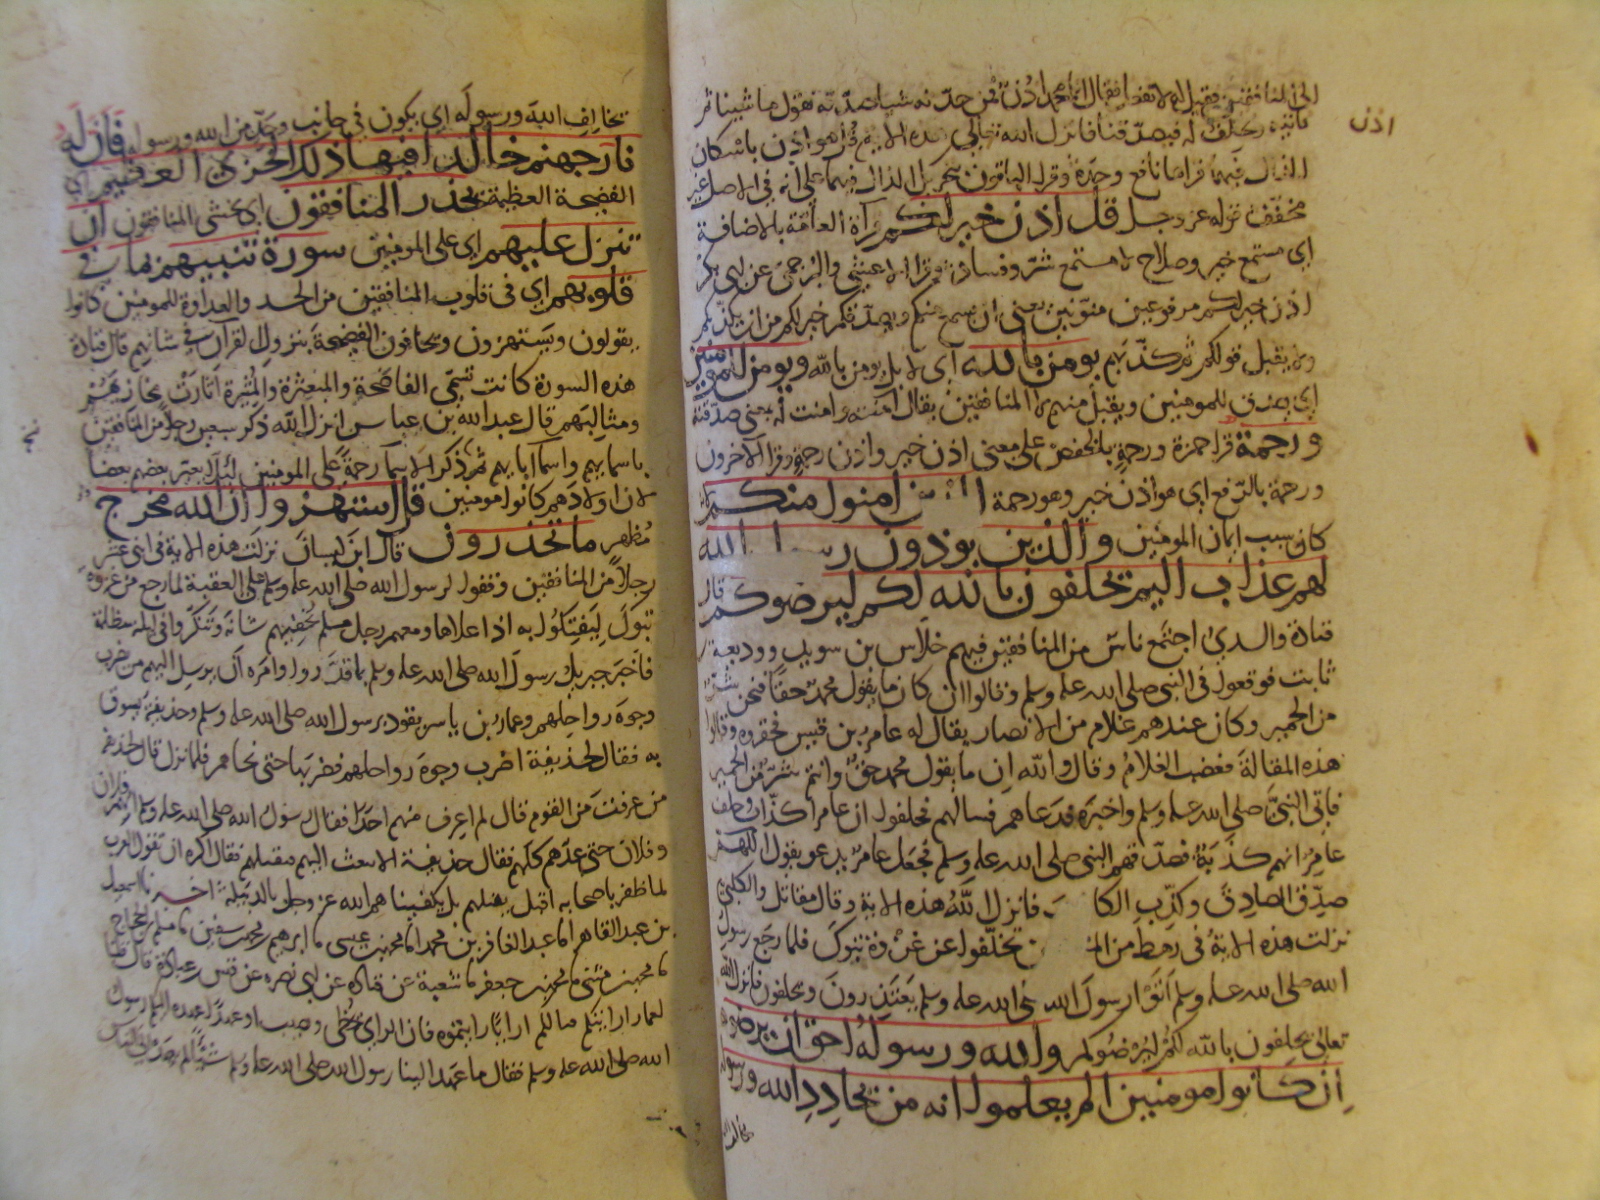 الى المنافقين فقيل له لا تفعل فقال انما محمد اذن فمن حدثه شيا صدقه فنقول ما شينا ثم
اذن
ناتيه ونحلف له فيصدقنا فانزل الله تعالى هذه الاية قوله هو اذن باسكان
الذال فيهما قراها نافع وحده وقرا الباقون بتحريك الذال فيهما على انه في الاصل غير
مخفف قوله عز وجل قل اذن خير لكم قرآة العامة بالاضافة
اي مستمع خير وصلاح لا مستمع شر وفساد وقرا الاعشى والبرجمي عن ابى بكر
اذن خير لكم مرفوعين منونين يعنى ان يسمع منكم ويصدقكم خير لكم من ان يكذبكم
ولا يقبل قولكم ثم كذبهم يومن بالله اى لا بل يومن بالله ويومن للمومنين
اي يصدق للمومنين ويقبل منهم لا المنافقين يقال امنته وامنت له بمعنى صدقته
ورحمة قرا حمزة ورحمةٍ بالخفض على معنى اذن خير واذن رحمةٍ وقرا الآخرون
ورحمة بالرفع اى هو اذن خير وهو رحمة امنوا منكم لانه
كان سبب ايمان المومنين والذين يوذون رسول الله
لهم عذاب اليم يحلفون بالله لكم ليرضوكم قال
قتادة والسدي اجتمع ناس من المنافقين فيهم جلاس بن سويد ووديعة بن
ثابت فوقعوا فى النبي صلى الله عليه وسلم وقالوا ان كان ما يقول محمد حقا فنحن شر
من الحمير وكان عندهم غلام من الانصار يقال له عامر بن قيس فحقروه وقالوا
هذه المقالة فغضب الغلام وقال والله ان ما يقول محمد حق وانتم شر من الحمير
فاتى النبي صلى الله عليه وسلم واخبره فدعاهم فسالهم فحلفوا ان عامرا كذاب وحلف
عامر انهم كذبة فصدقهم النبى صلى الله عليه وسلم فجعل عامر يدعو يقول اللهم
صدق الصادق وكذب الكا ب فانزل الله هذه الاية وقال مقاتل والكلبى
نزلت هذه الاية فى رهط من المنا ن تخلفوا عن غزوة تبوك فلما رجع رسول
الله صلى الله عليه وسلم اتوا رسول الله صلى الله عليه وسلم يعتذرون ويحلفون فانزل الله
تعالى يحلفون بالله لكم ليرضوكم والله ورسوله احق ان يرضوه
ان كانوا مومنين الم يعلموا انه من يحادد الله ورسوله
يخالف الله
يخالف الله ورسوله اي يكون في جانب وحد من الله ورسوله فان له
نار جهنم خالدا فيها ذلك الخزى العظيم اي
الفضيحة العظيمة يحذر المنافقون اى يخشى المنافقون ان
تنزل عليهم اي على المومنين سورة تنبيهم بما في
قلوبهم اي فى قلوب المنافقين من الحسد والعداوة للمومنين كانوا
يقولون ويستهزون ويخافون الفضيحة بنزول القرآن في شانهم قال قتادة
هذه السورة كانت تسمى الفاضحة والمبعثرة والمثيرة اثارت مخازيهم
ومثالبهم قال عبد الله بن عباس انزل الله ذكر سبعين رجلا من المنافقين
باسمايهم واسما آبايهم ثم ذكر الاسما رحمة على المومنين ليلا يعير بعضهم بعضا
لان اولادهم كانوا مومنين قل استهزوا ان الله مخرج
مظهر ما تحذرون قال ابن كيسان نزلت هذه الاية فى اثنى عشر
رجلا من المنافقين وقفوا لرسول الله صلى الله عليه وسلم على العقبة لما رجع من غزوة
تبوك ليفتكوا به اذا علاها ومعهم رجل مسلم يخفيهم شانه وتنكروا فى ليلة مظلمة
فاخبر جبريل رسول الله صلى الله عليه وسلم بما قدروا وامره ان يرسل اليهم من يضرب
وجوه رواحلهم وعمار بن ياسر يقود برسول الله صلى الله عليه وسلم وحذيفة يسوق
به فقال لحذيفة اضرب وجوه رواحلهم فضربها حتى نحاهم فلما نزل قال لحذيفة
من عرفت من القوم قال لم اعرف منهم احدا فقال رسول الله صلى الله عليه وسلم انهم فلان
وفلان حتى عدهم كلهم فقال حذيفة الا تبعث اليهم فتقتلهم فقال اكره ان تقول العرب
لما ظفر باصحابه اقبل يقتلهم بل يكفيناهم الله عز وجل بالدبيلة اخبرنا اسمعيل
بن عبد القاهر انا عبد الغافر بن محمد انا محمد بن عيسى نا ابرهيم بن محمد بن سفين نا مسلم بن الحجاج
نا محمد بن مثنى نا محمد بن جعفر نا شعبة عن قتادة عن ابى نضره عن قيس بن عباد قال قلنا
لعمار ارايتكم قتالكم ارايا رايتموه فان الراي يخطى ويصيب او عهدا عهده اليكم رسول
الله صلى الله عليه وسلم فقال ما عهد الينا رسول الله صلى الله عليه وسلم شيئا لم يعهده الى الناس